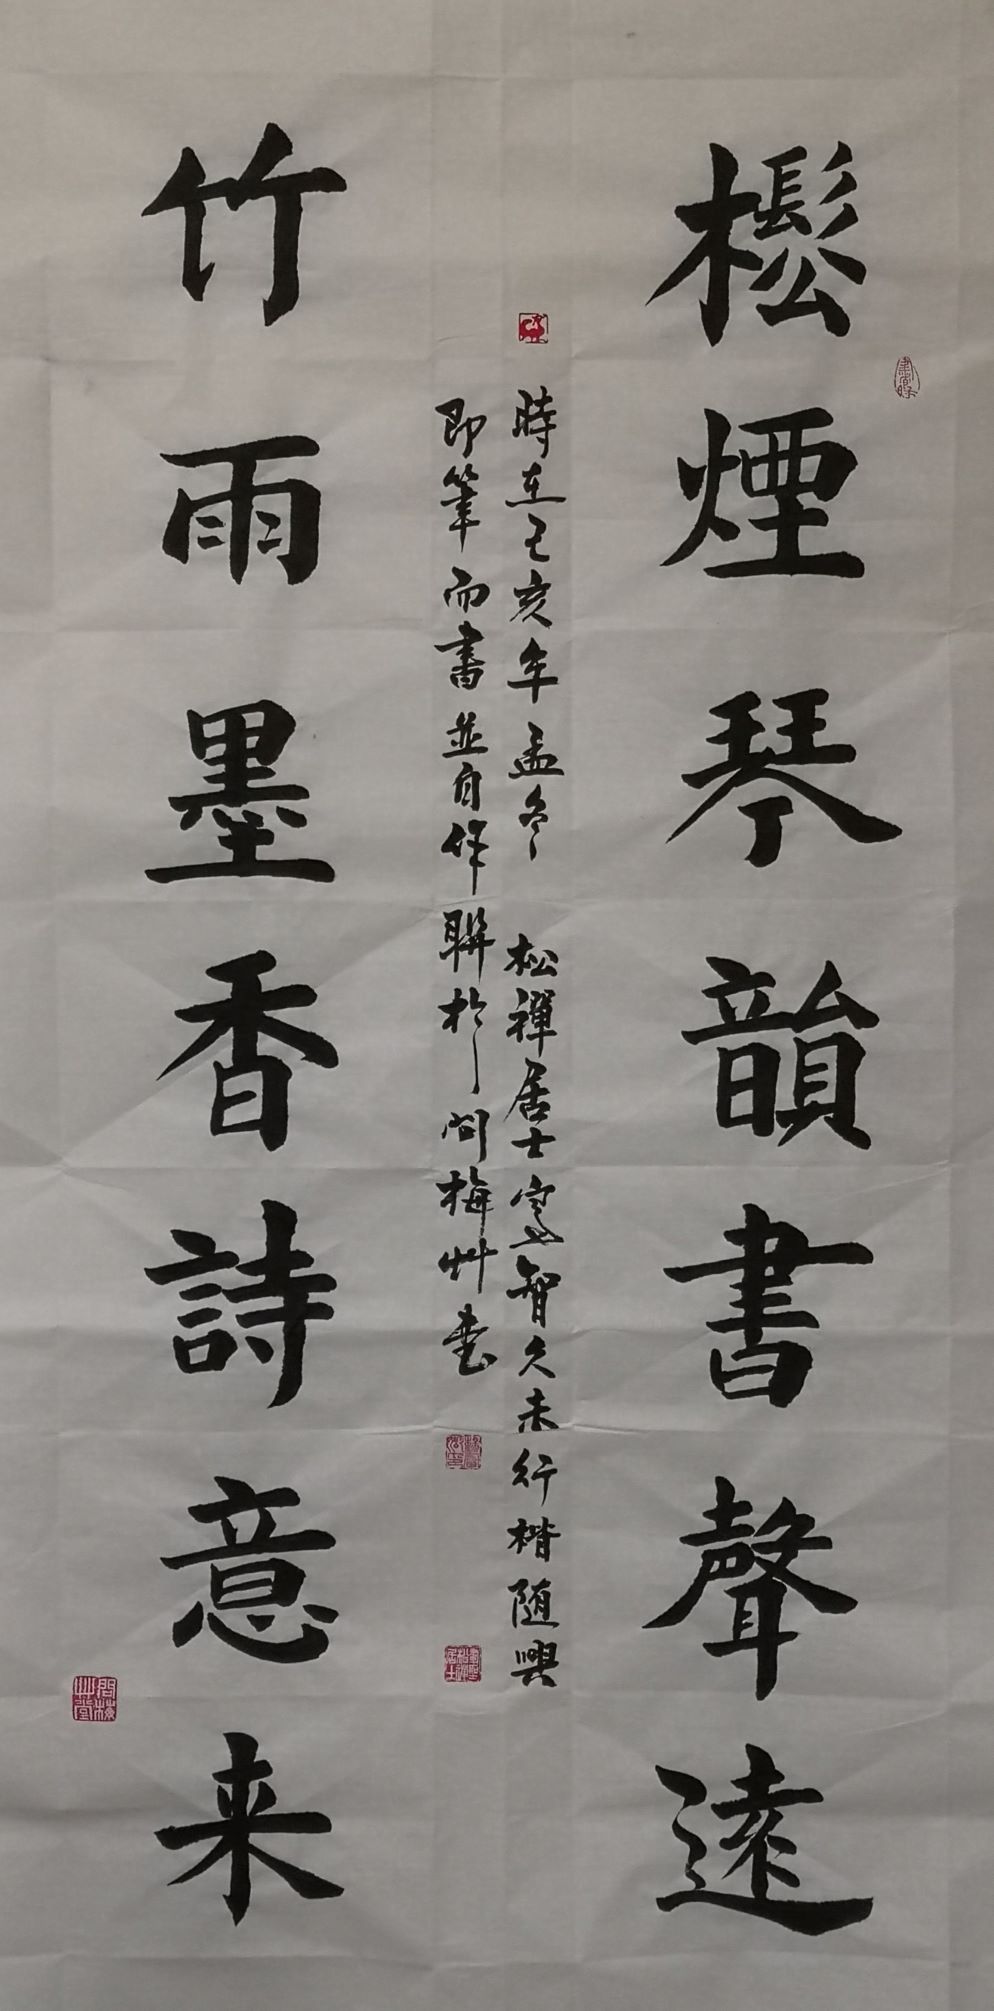 櫷煙琴韻書聲遠
時在己亥年孟冬 松禪居士寫智久未行楷随興
即筆而書並自作聯於問梅艸堂
竹雨墨香詩意来
問梅艸堂